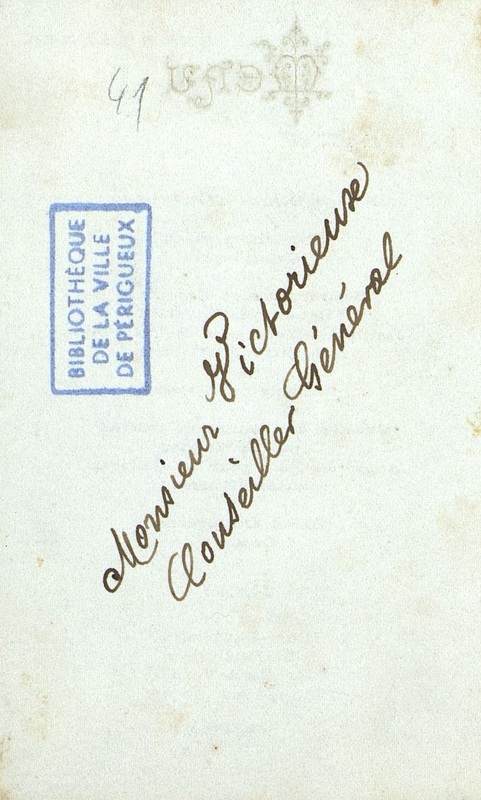 Menu
41
BIBLIOTHÈQUE
DE LA VILLE
DE PÉRIGUEUX
Monsieur Victorieuse
Conseiller Général